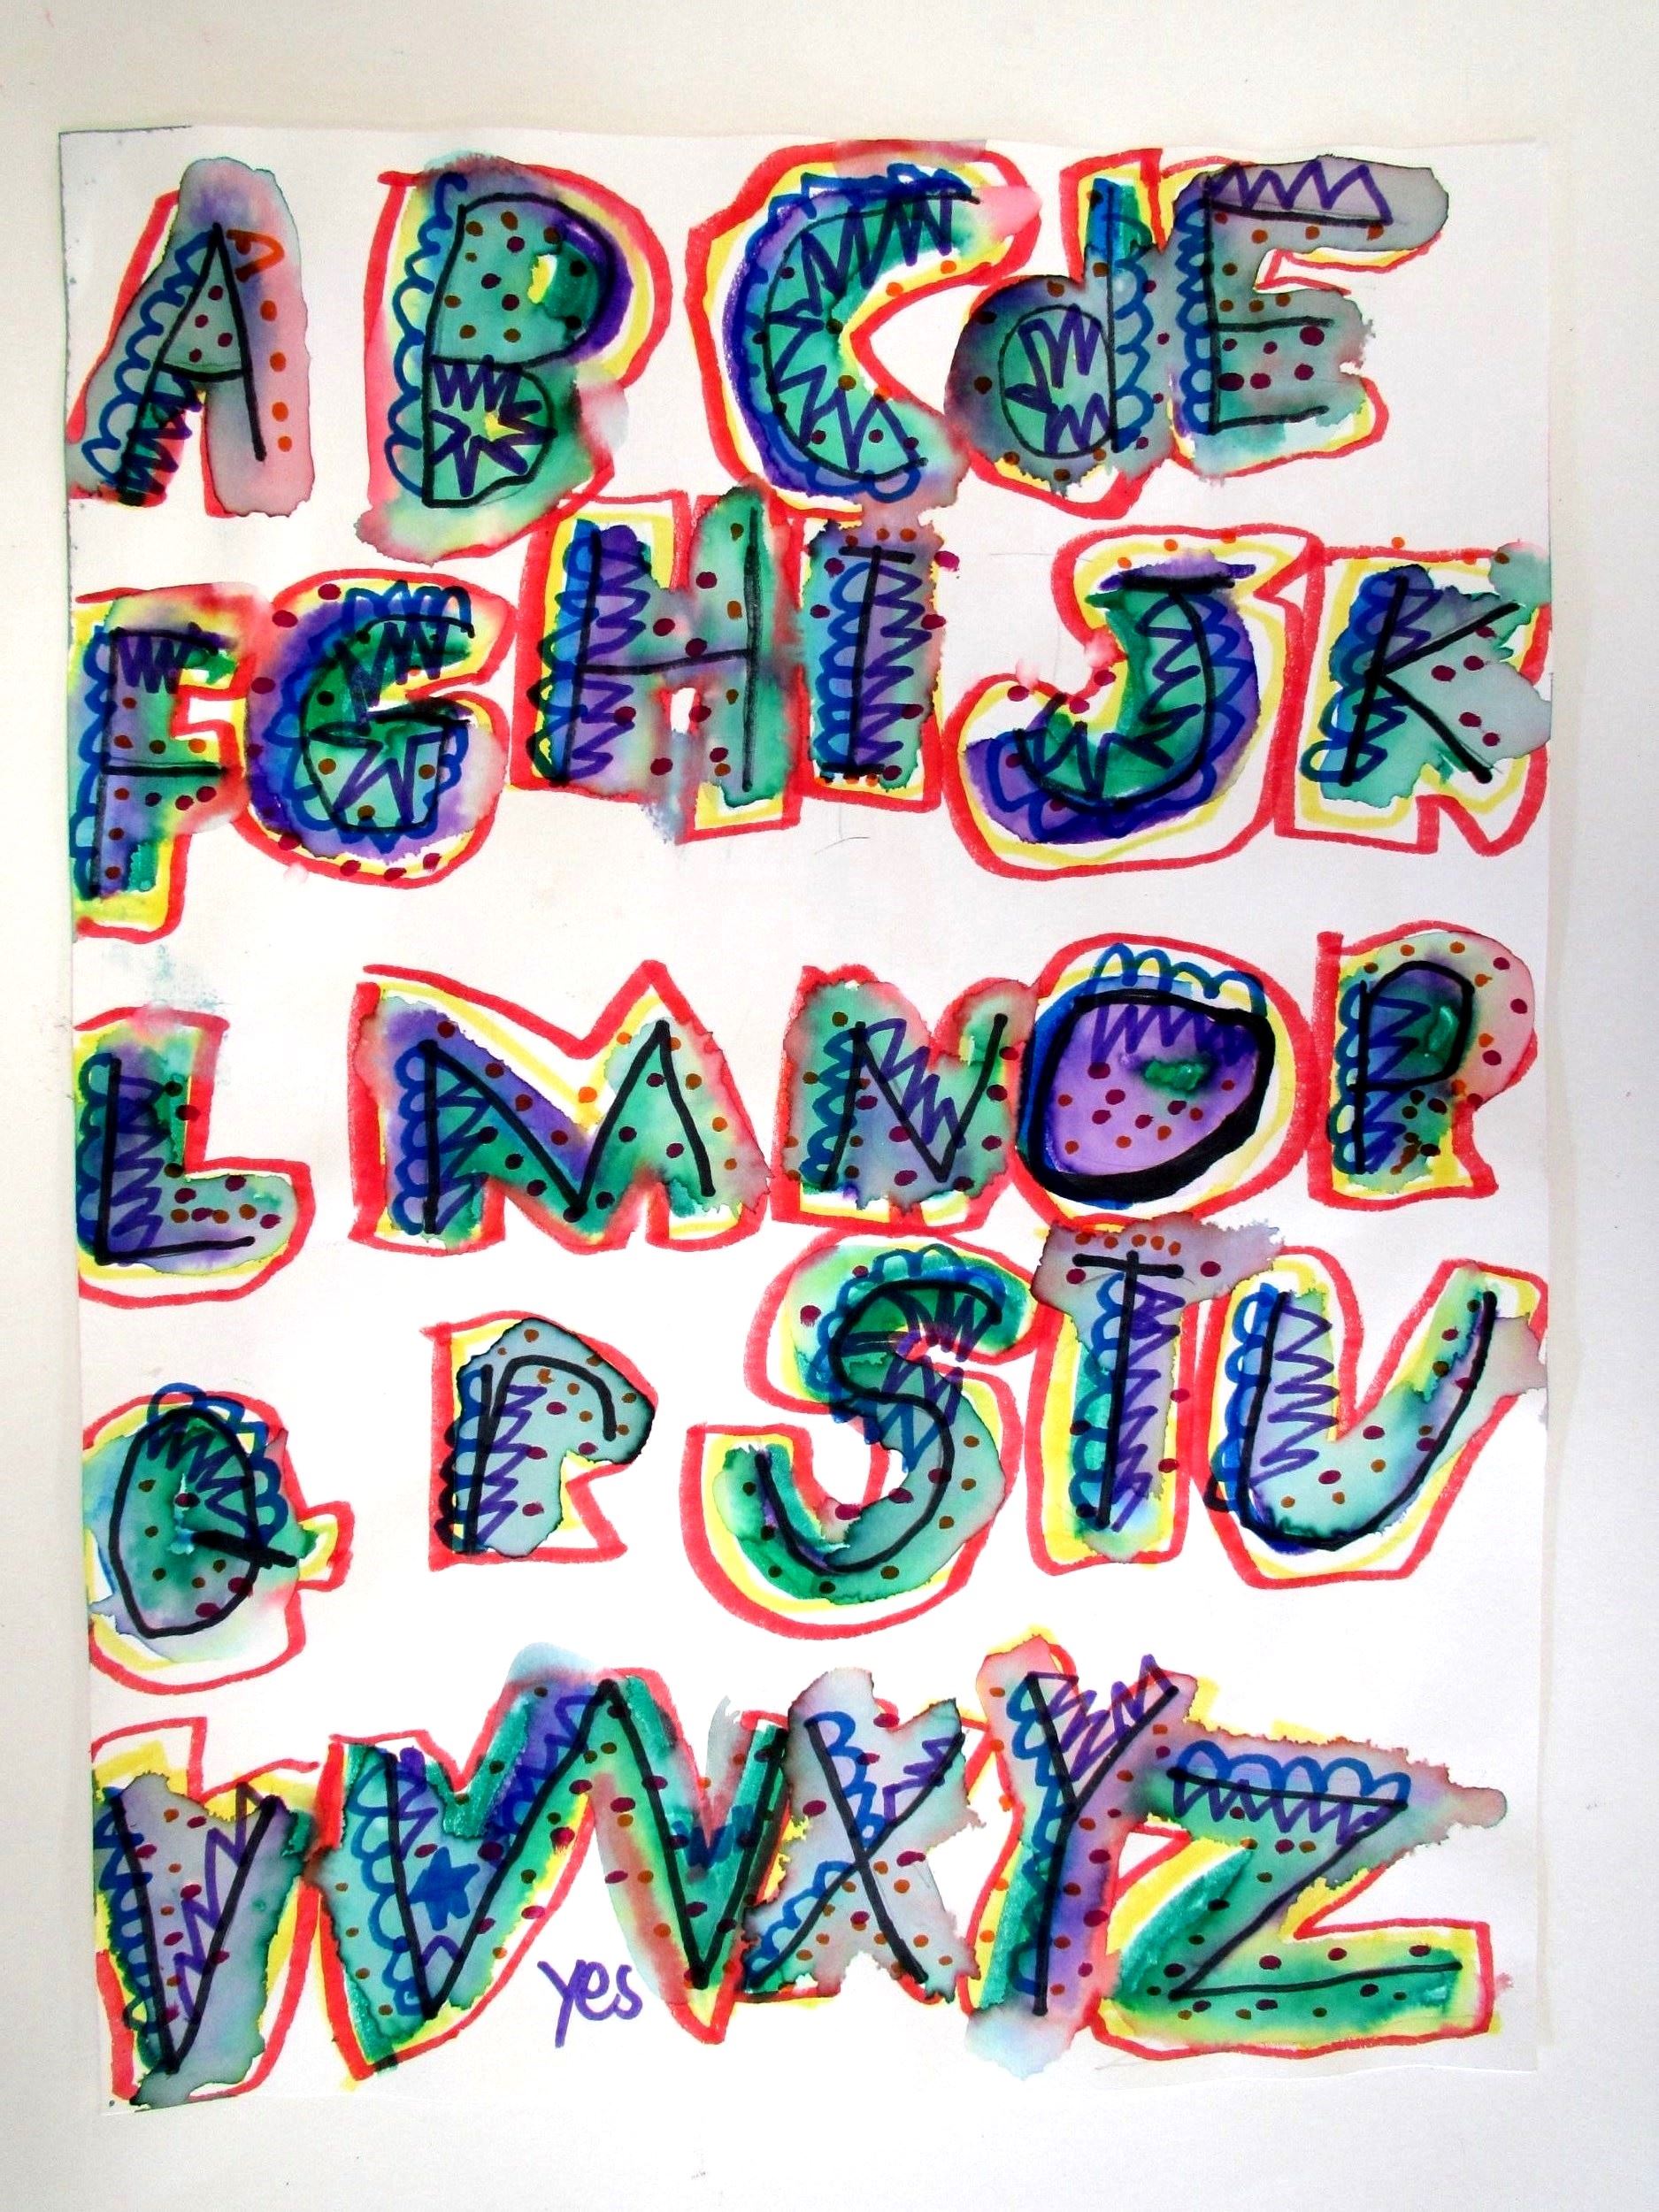 A B C d E
F G H I J K
L M N O P
Q R S T U
V W X Y Z
yes